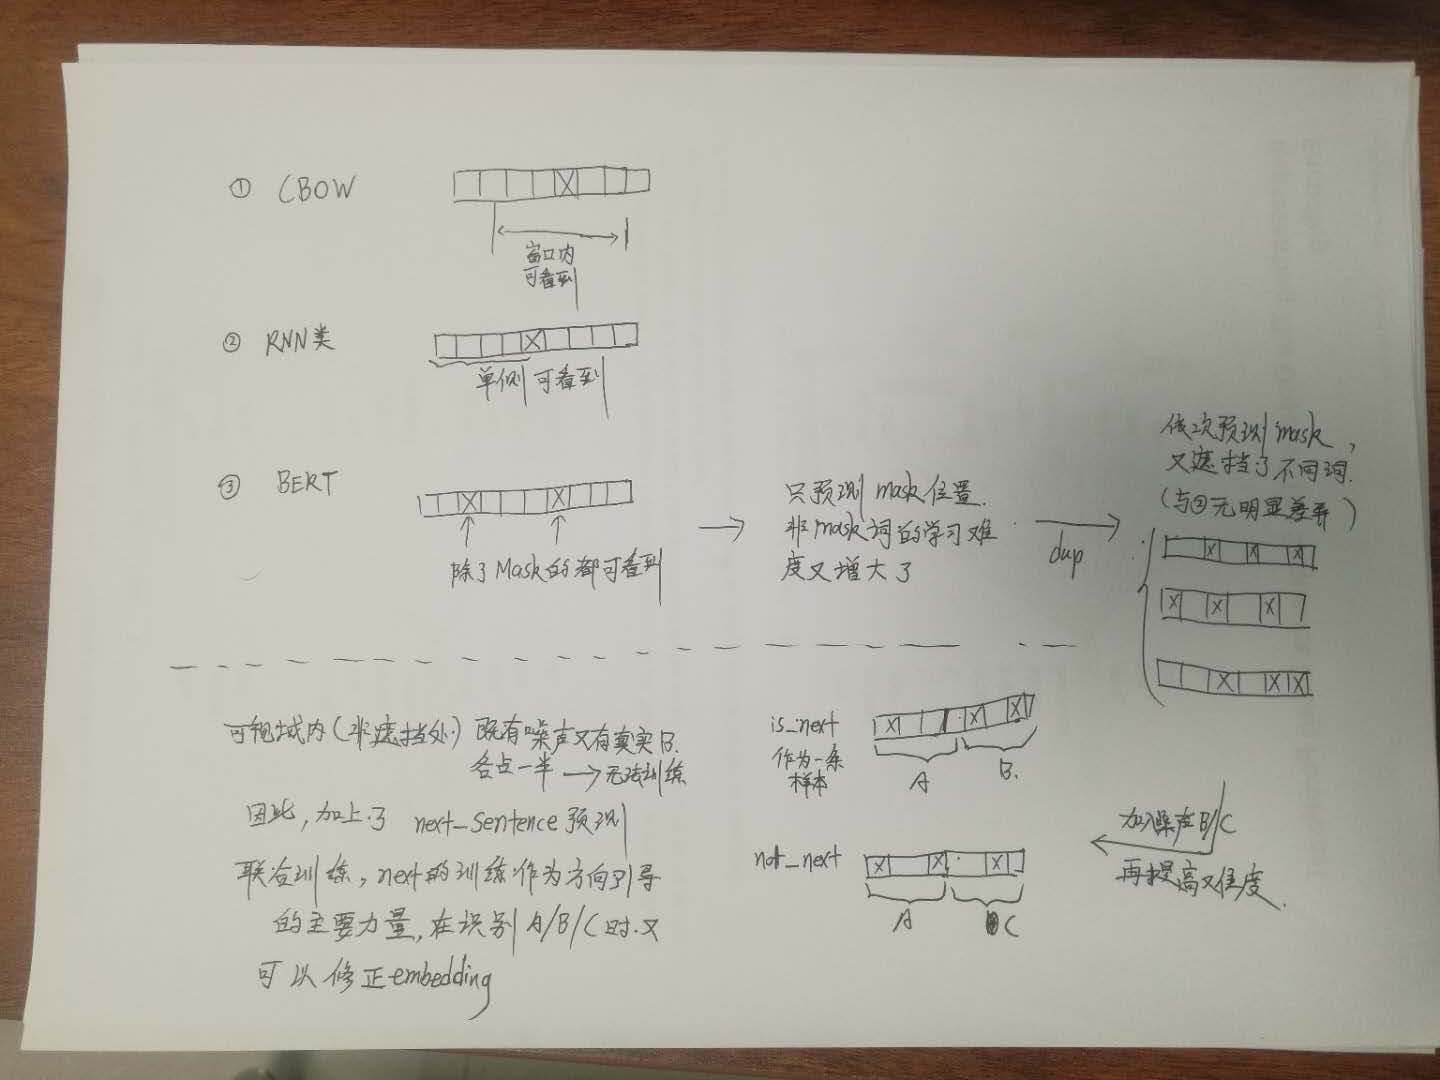 ① CBOW
窗口内
可看到
② RNN类
单侧可看到
③ BERT
除了Mask的都可看到
只预测mask位置.
非mask词的学习难
度又增大了
dup
依次预测mask,
又遮挡了不同词.
(与②无明显差异)
可视域内(非遮挡处)既有噪声又有真实B.
各占一半→无法训练
因此,加上了 next_sentence预测
联合训练,next的训练作为方向引导
的主要力量,在识别A/B/C时.又
可以修正embedding
is_next
作为一条
样本
A
B.
not_next
A
C
加入噪声B/C
再提高难度.